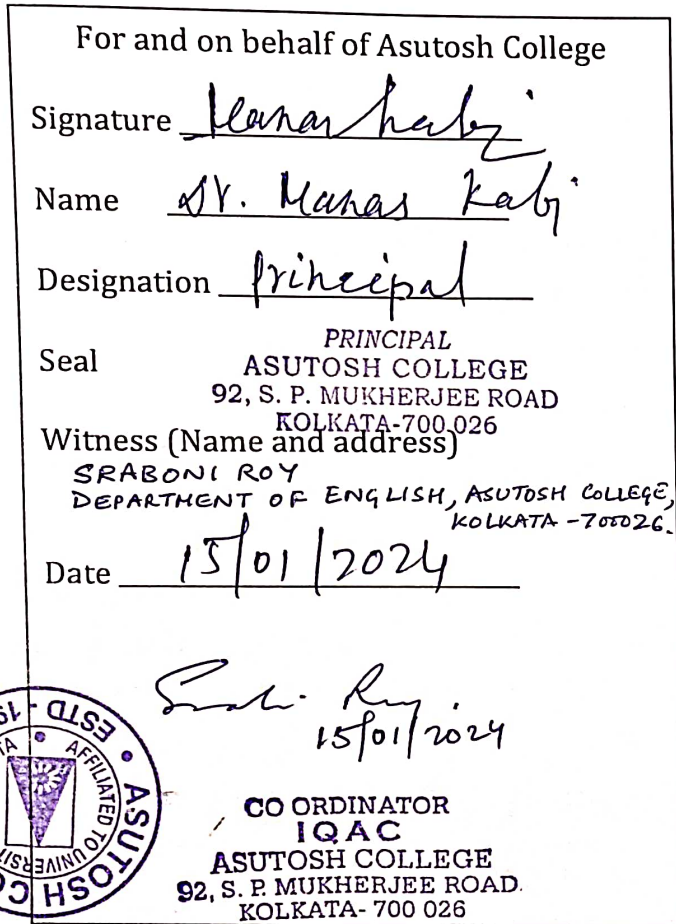 For and on behalf of Asutosh College
Signature Manas Kabi
Name Dr. Manas Kabi
Designation Principal
PRINCIPAL
Seal ASUTOSH COLLEGE
92, S. P. MUKHERJEE ROAD
KOLKATA-700 026
Witness (Name and address)
SRABONI ROY
DEPARTMENT OF ENGLISH, ASUTOSH COLLEGE,
KOLKATA -700026.
Date 15/01/2024
15/01/2024
ESTD - 19
AFFILIATED TO UNIVERSIT
ASUTOSH CO
CO ORDINATOR
IQAC
ASUTOSH COLLEGE
92, S. P. MUKHERJEE ROAD.
KOLKATA- 700 026